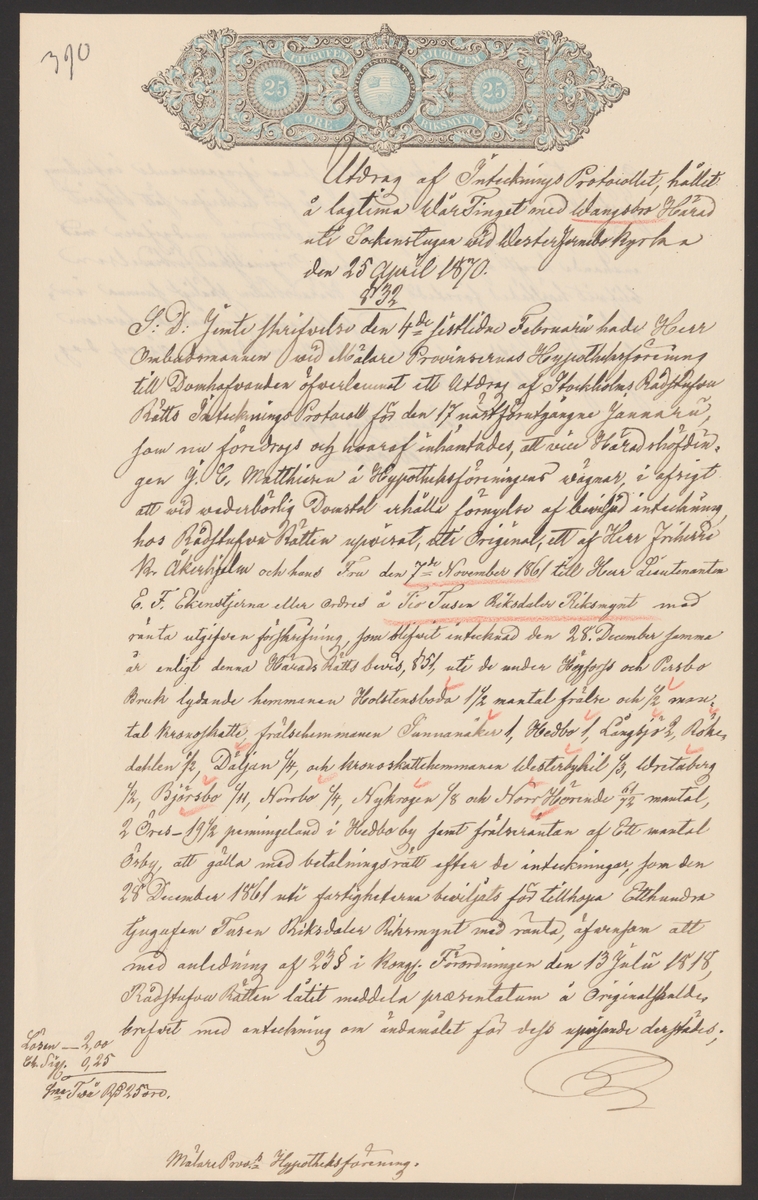 390
TJUGUFEM TJUGUFEM
25 25
ÖRE RIKSMYNT
Utdrag af Intecknings Protocollet, hållet
å lagtima WårTinget med Wangsbro Härad
uti Sockenstugan wid WesterFernebo Kyrka
den 25 April 1870.
§32
S: D: Jemte skrifvelse den 4de sistlidne Februarii hade Herr
Ombudsmannen wid Mälare Provinsernas Hypotheksförening
till Domhafvanden öfverlemnat ett Utdrag af Stockholms Rådstufvu
Rätts Intecknings Protocoll för den 17 nästförutgångne Januarii,
som nu föredrogs och hvaraf inhämtades, att vice Häradshöfdin-
gen J. E. Matthiesen å Hypotheksföreningens wägnar, i afsigt
att wid wederbörlig Domstol erhålla förnyelse af beviljad inteckning,
hos Rådstufvu Rätten upvisat, uti Original, ett af Herr Friherre
Åkerhjelm och hans Fru den 7de November 1861 till Herr Lieutenanten
E. F. Ekenstjerna eller ordres å Tio Tusen Riksdaler Riksmynt med
ränta utgifven förskrifning, som blifvit intecknad den 28. December samma
år enligt denna Härads Rätts bevis, §51, uti de under Högfors och Persbo
Bruk lydande hemmanen Holstensboda 1 1/2 mantal frälse och 1/2 man-
tal kronoskatte, frälsehemmanen Sunnanåker 1, Hedbo 1, Långbjer 2, Röke-
dahlen 1/2, Däljan 1/4, och kronoskattehemmanen Westerbykil 1/3, Wretaberg
1/2, Bjursbo 1/4, Norrbo 1/4, Nykrogen 1/8 och Norr Hörende 61/72 mantal,
2 Öres- 19 1/2 penningeland i Hedbo by samt frälseräntan af Ett mantal
Örby, att gälla med betalningsrätt efter de inteckningar, som den
28 December 1861 uti fastigheterna beviljats för tillhopa Etthundra
tjugufem Tusen Riksdaler Riksmynt med ränta, äfvensom att
med anledning af 23§ i Kongl. Förordningen den 13 Julii 1818,
Rådstufvu Rätten låtit meddela præsentatum å Originalskulde-
brefvet med anteckning om ändamålet för dess upvisande derstädes;
Lösen — 2,00
Ch. Sig. 0,25
Sma Två Rd 25 öre.
Mälare Prov:s Hypotheksförening.